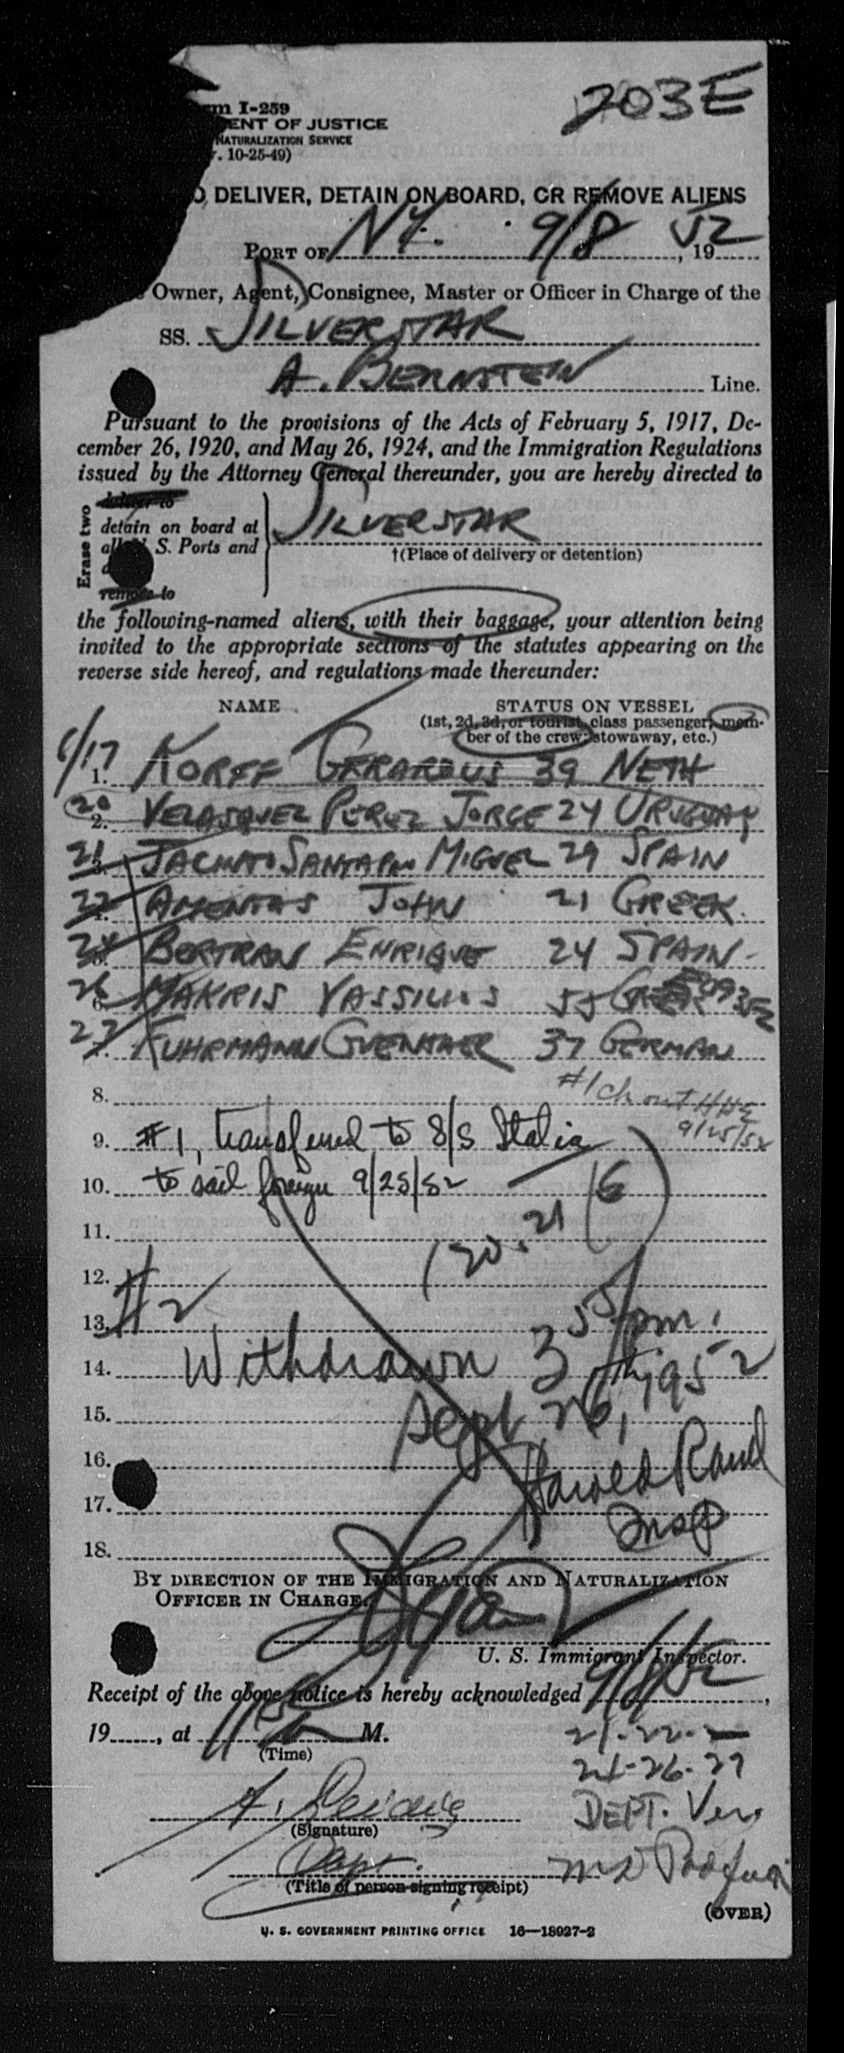 203E
I-259
OF JUSTICE
NATURALIZATION SERVICE
10-25-49)
DELIVER, DETAIN ON BOARD, OR REMOVE ALIENS
PORT OF NY. 9/8, 1952
Owner, Agent, Consignee, Master or Officer in Charge of the
SS. SILVERSTAR
A. BERNSTEIN Line.
Pursuant to the provisions of the Acts of February 5, 1917, De-
cember 26, 1920, and May 26, 1924, and the Immigration Regulations
issued by the Attorney General thereunder, you are hereby directed to
Erase two
detain on board at
S. Ports and
SILVERSTAR
†(Place of delivery or detention)
remove to
the following-named aliens, with their baggage, your attention being
invited to the appropriate sections of the statutes appearing on the
reverse side hereof, and regulations made thereunder:
NAME STATUS ON VESSEL
(1st, 2d, 3d, or tourist class passenger, mem-
ber of the crew, stowaway, etc.)
1. 17 KORFF GERARDUS 39 NETH
2. 20 VELASQUEZ PEREZ JORGE 24 URUGUAY
21 JACINTO MIGUEL 29 SPAIN
22 JOHN 21 GREEK.
24 BERTRAN ENRIQUE 24 SPAIN
26 MAKRIS VASSILIOS 55 GREEK
27 FUHRMANN GUENTHER 37 GERMAN
8. #1 ch out
9/25/52
9. #1, transferred to S/S Italia
10. to sail foreign 9/25/52
11. (20.21
12.
13. #2
14. Withdrawn 3 55 pm.
15. Sept. 26, 1952
16. Harold Rand
17. Insp
18.
BY DIRECTION OF THE IMMIGRATION AND NATURALIZATION
OFFICER IN CHARGE.
U. S. Immigrant Inspector.
Receipt of the above notice is hereby acknowledged 9/8/52,
19......, at M.
(Time)
21-22-
24-26-27
(Signature)
DEPT. Ver.
Capt.
(Title of person signing receipt)
(OVER)
U. S. GOVERNMENT PRINTING OFFICE 16—18027-2